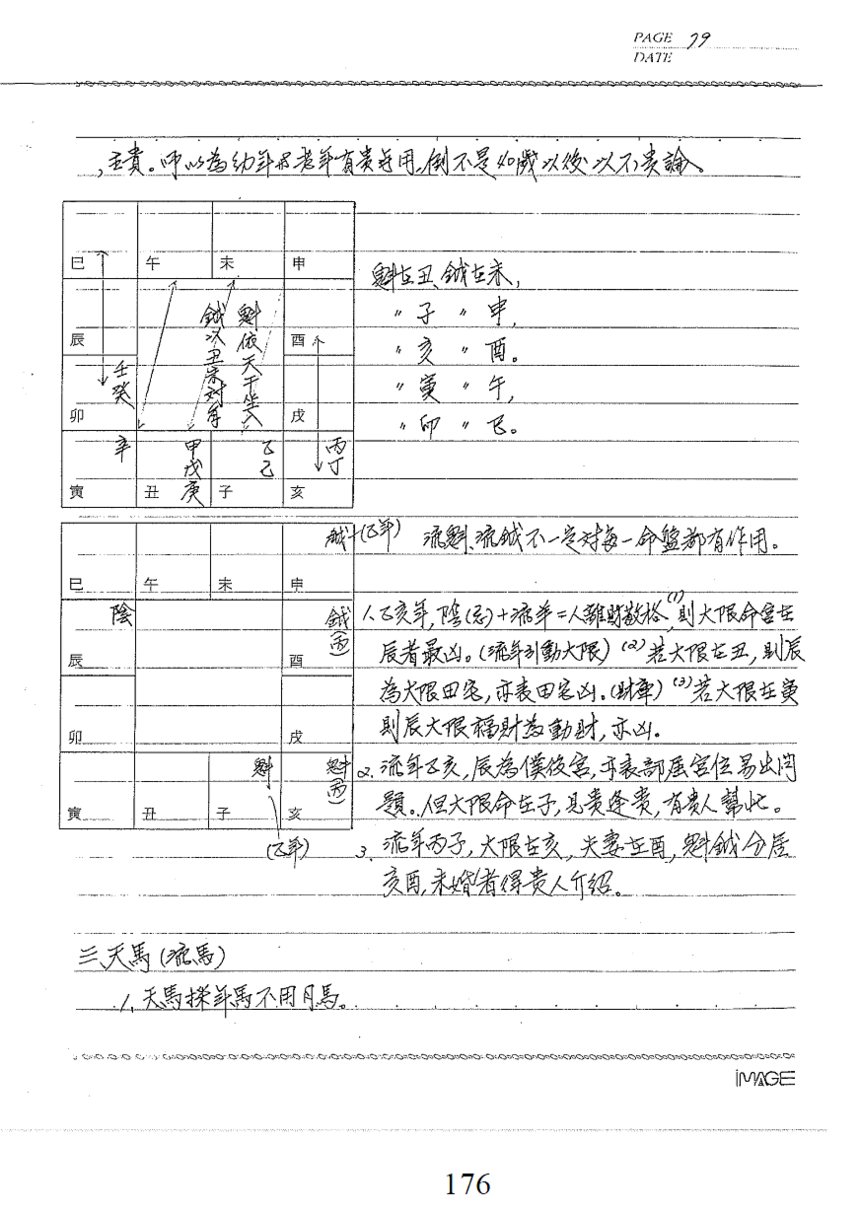 PAGE 79
DATE
,主貴。所以為幼年及老年有貴无用,倒不是40歲以後以不貴論。
巳 午 未 申
辰 酉
卯 戌
寅 丑 子 亥
壬癸
辛
甲戊庚
乙己
丙丁
鉞以丑未对拿
魁依天干坐入
魁在丑、鉞在未,
〃子 〃 申,
〃亥 〃 酉。
〃寅 〃 午,
〃卯 〃 巳。
鉞(乙年)
流魁、流鉞不一定对每一命盤都有作用。
巳 午 未 申
陰
鉞(丙)
辰 酉
卯 戌
魁
魁(丙)
寅 丑 子 亥
(乙年)
1、乙亥年,陰(忌)+流羊=人離財散格,(1)則大限命宮在
辰者最凶。(流年引動大限) (2)若大限在丑,則辰
為大限田宅,亦表田宅凶。(財庫) (3)若大限在寅
則辰大限福財為動財,亦凶。
2、流年乙亥,辰為僕役宮,亦表部屬宮位易出問
題。但大限命在子,見貴逢貴,有貴人幫忙。
3、流年丙子,大限在亥,夫妻在酉,魁鉞分居
亥酉,未婚者得貴人介紹。
三、天馬(流馬)
1、天馬採年馬不用月馬。
iMAGE
176